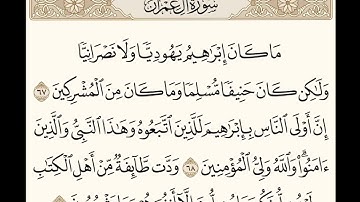 سُورَةُ آلِ عِمْرَانَ
مَا كَانَ إِبْرَٰهِيمُ يَهُودِيًّا وَلَا نَصْرَانِيًّا
وَلَٰكِن كَانَ حَنِيفًا مُّسْلِمًا وَمَا كَانَ مِنَ الْمُشْرِكِينَ ٦٧
إِنَّ أَوْلَى النَّاسِ بِإِبْرَٰهِيمَ لَلَّذِينَ اتَّبَعُوهُ وَهَٰذَا النَّبِيُّ وَالَّذِينَ
ءَامَنُوا۟ ۗ وَاللَّهُ وَلِيُّ الْمُؤْمِنِينَ ٦٨ وَدَّت طَّآئِفَةٌ مِّنْ أَهْلِ الْكِتَٰبِ